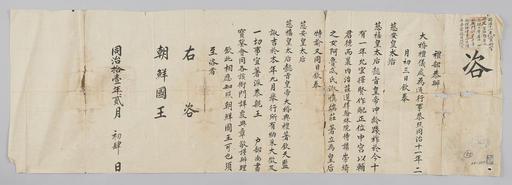 咨
禮部恭辦
大婚禮儀處為通行事恭照同治十一年二
月初三日欽奉
慈安皇太后
慈禧皇太后懿旨皇帝沖齡踐祚於今十
有一年允宜擇賢作配正位中宮以輔
君德而襄內治茲選得翰林院侍講崇綺
之女阿魯忒氏淑慎端莊著立為皇后
特諭又同日欽奉
慈安皇太后
慈禧皇太后懿旨皇帝大婚典禮著欽天監
諏吉於本年九月舉行所有納采大徵及
一切事宜著派恭親王 戶部尚書
寶鋆會同各該衙門詳覈典章敬謹辦理
欽此相應知照朝鮮國王可也須
至咨者
右咨
朝鮮國王
同治拾壹年貳月 初肆 日